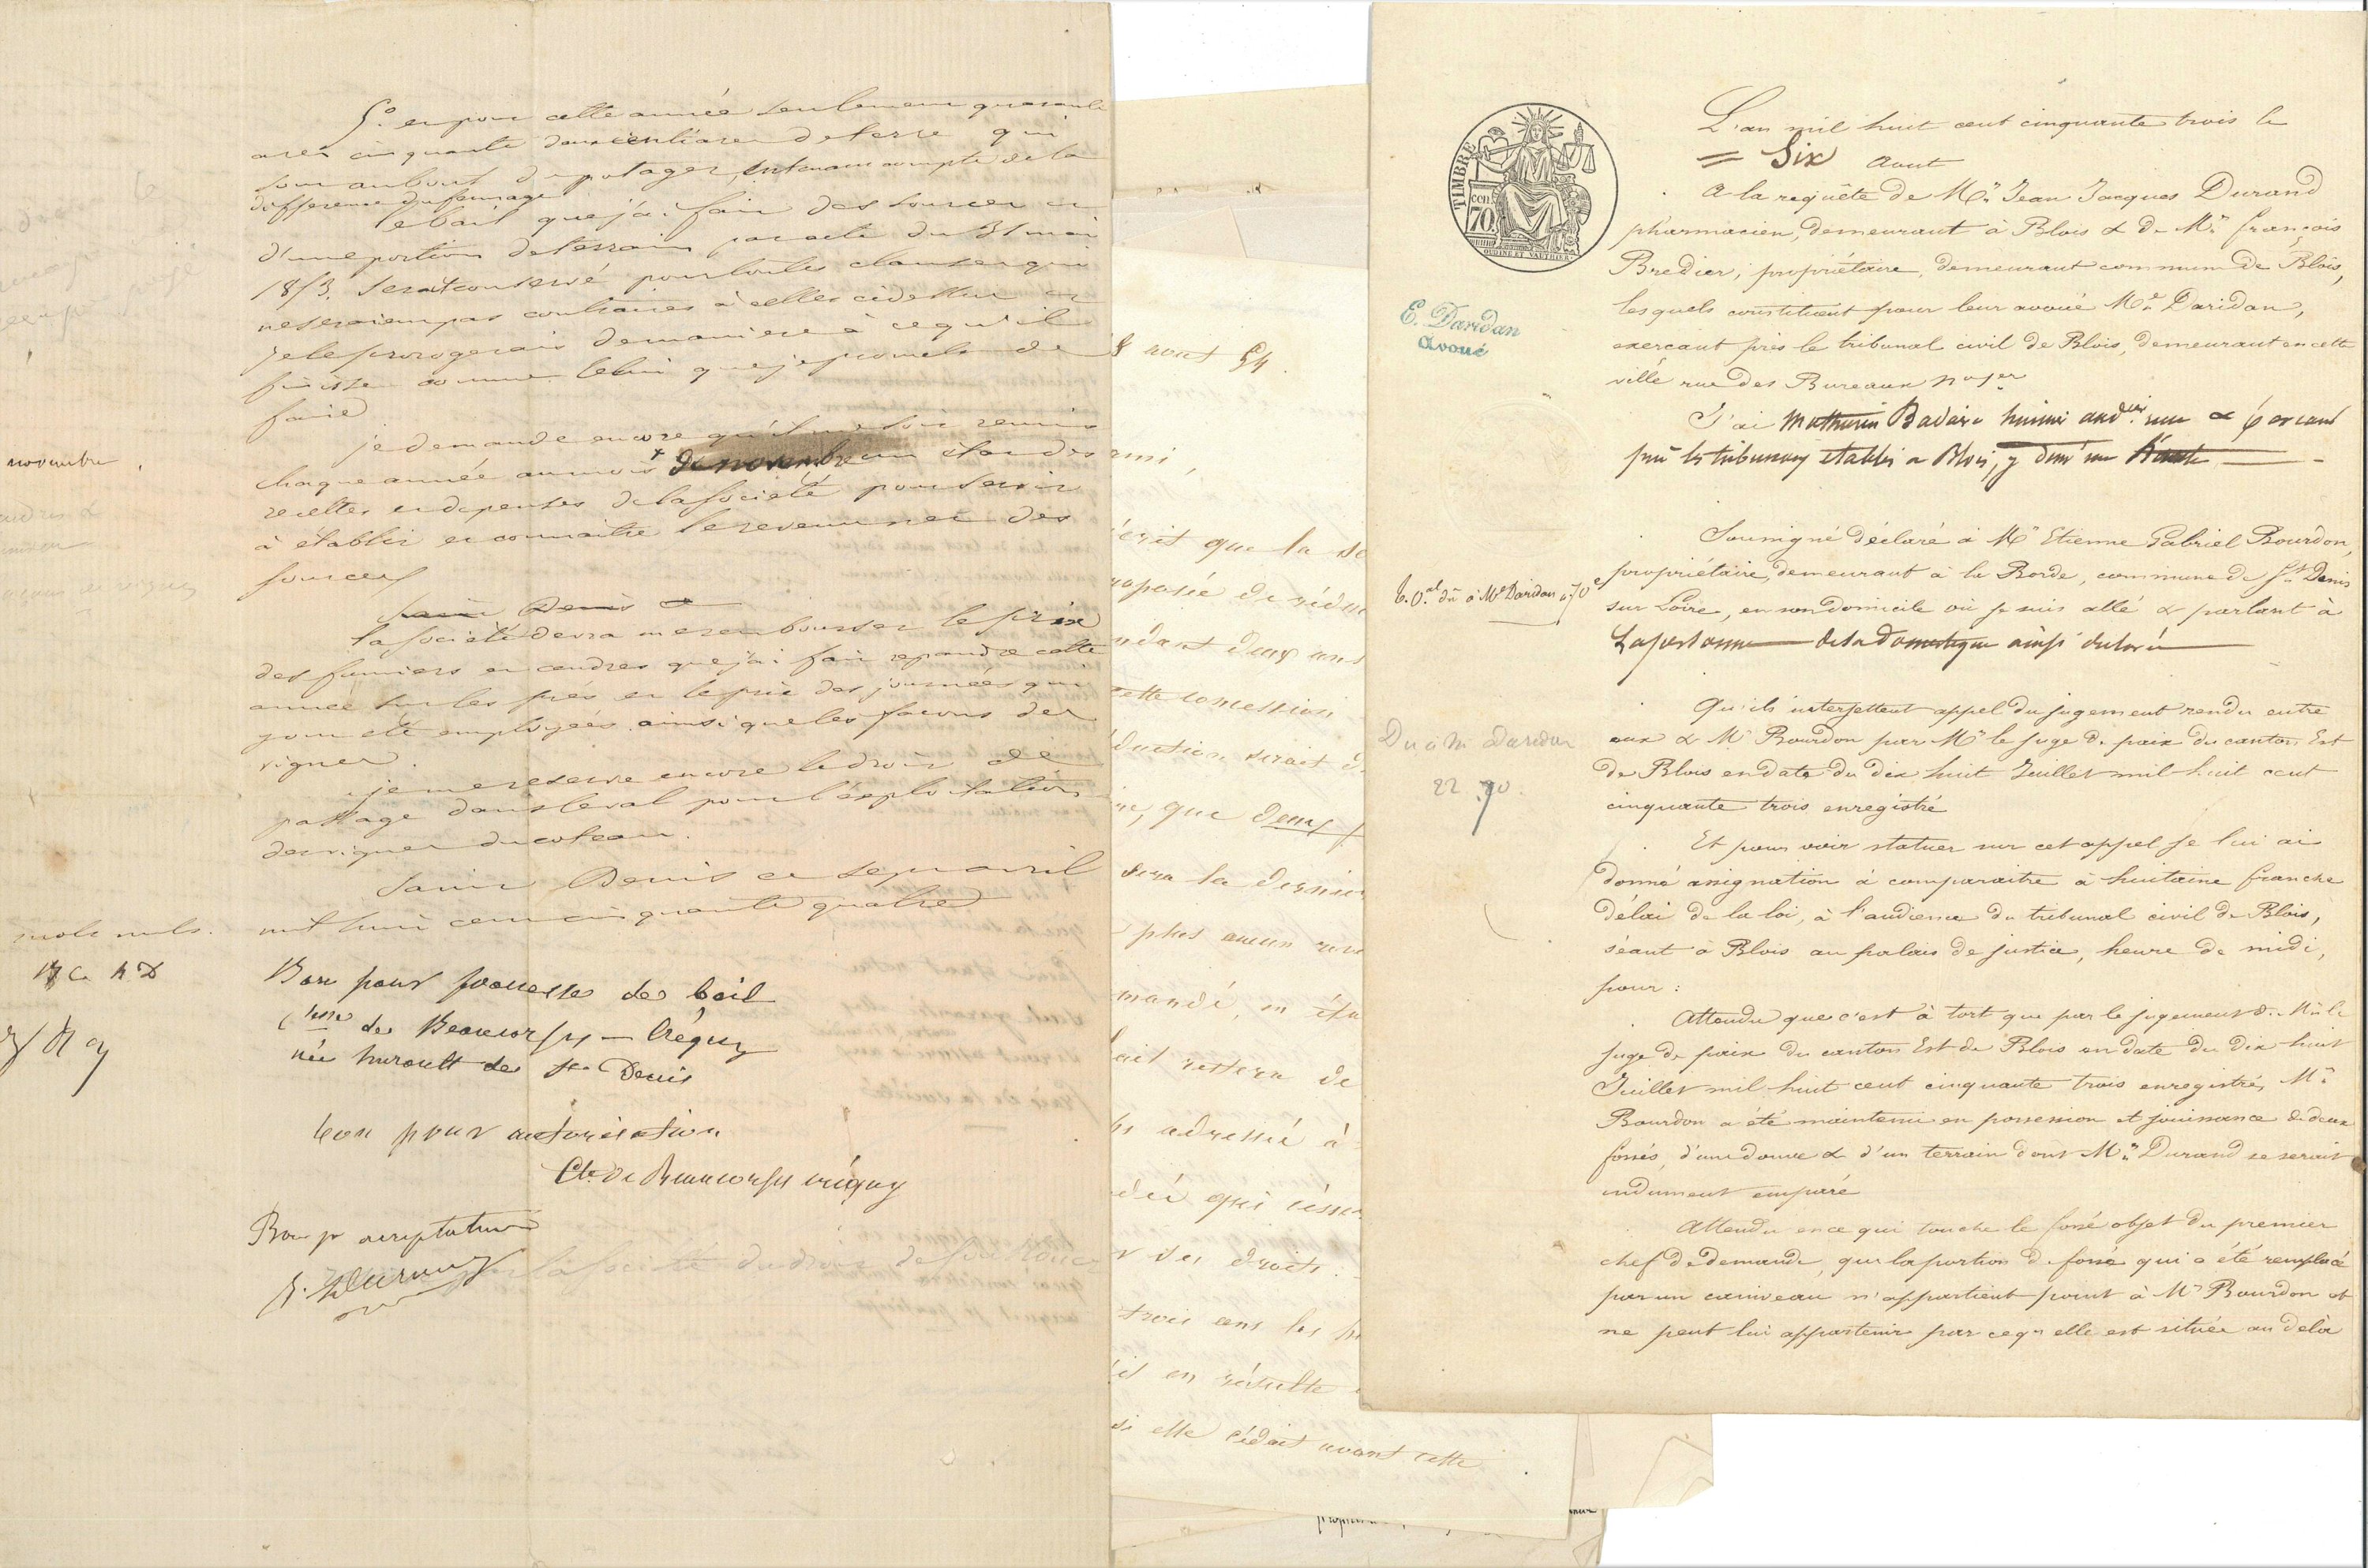 5.° et pour cette année seulement quarante
ares cinquante deux centiares de terre qui
sont au bout du potager, en tenant compte de la
difference du fermage
le bail que j'ai fait des sources et
d'une portion de terrain par acte du 31 mai
1853. serait conservé pour toutes clauses qui
ne seraient pas contraires à celles cidessus et
je le prorogerais de maniere à ce qu'il
finisse comme celui que je promets de
faire
je demande encore qu'il me soit remis
chaque année au mois de novembre un état des
recettes et depenses de la societé pour servir
à établir et connaitre le revenu net des
sources
Saint Denis ce
la societé devra me rembourser le prix
des fumiers et cendres que j'ai fait repandre cette
année sur les prés et le prix des journées qui
y ont été employées ainsi que les façons des
vignes.
je me reserve encore le droit de
passage dans le val pour l'exploitation
des vignes du coteau.
Saint Denis ce sept avril
mil huit cent cinquante quatre
novembre
mots nuls.
Bon pour promesse de bail
Ctesse de Beaucorps-Créquy
née hurault de St Denis
bon pour autorisation
Cte de Beaucorps créquy
Bon pr acceptation
la societé du droit de
8 aout 54.
écrit que la
deux ans
cette concession
duction serait
que deux
sera la
plus aucun
mandé, en
restera de
adressé à
qui
droits.
trois ans les
en résulte
si elle cédait avant cette
TIMBRE
70
cen
OUDINÉ ET VAUTHIER
E. Daridan
Avoué
L'an mil huit cent cinquante trois le
= Six aout
A la requête de Mr. Jean Jacques Durand
pharmacien, demeurant à Blois & de Mr. françois
Bredier, propriétaire, demeurant commune de Blois,
lesquels constituent pour leur avoué Me. Daridan,
exerçant près le tribunal civil de Blois, demeurant en cette
ville rue des Bureaux no 1er
J'ai Mathurin Badaire huissier audcier reçu & exerçant
près les tribunaux établis a Blois, y demt rue haute
Soussigné déclaré à Mr Etienne Gabriel Bourdon,
propriétaire, demeurant à la Borde, commune de St. Denis
sur Loire, en son domicile où je suis allé & parlant à
La personne de sa domestique ainsi déclaré
dû à Me Daridan 70c
Qu'ils interjettent appel du jugement rendu entre
eux & Mr Bourdon par Mr le juge de paix du canton Est
de Blois en date du dix huit Juillet mil huit cent
cinquante trois enregistré
Du à Me Daridan
22.70.
Et pour voir statuer sur cet appel je lui ai
donné assignation à comparaitre à huitaine franche
délai de la loi, à l'audience du tribunal civil de Blois,
séant à Blois au palais de justice, heure de midi,
pour :
Attendu que c'est à tort que par le jugement de Mr le
juge de paix du canton Est de Blois en date du dix huit
Juillet mil huit cent cinquante trois enregistré, Mr.
Bourdon a été maintenu en possession et jouissance de deux
fossés, d'une douve & d'un terrain dont Mr. Durand se serait
indument emparé
Attendu en ce qui touche le fossé objet du premier
chef de demande, que la portion de fossé qui a été remplacé
par un caniveau n'appartient point à Mr Bourdon et
ne peut lui appartenir par ce qu'elle est située au delà